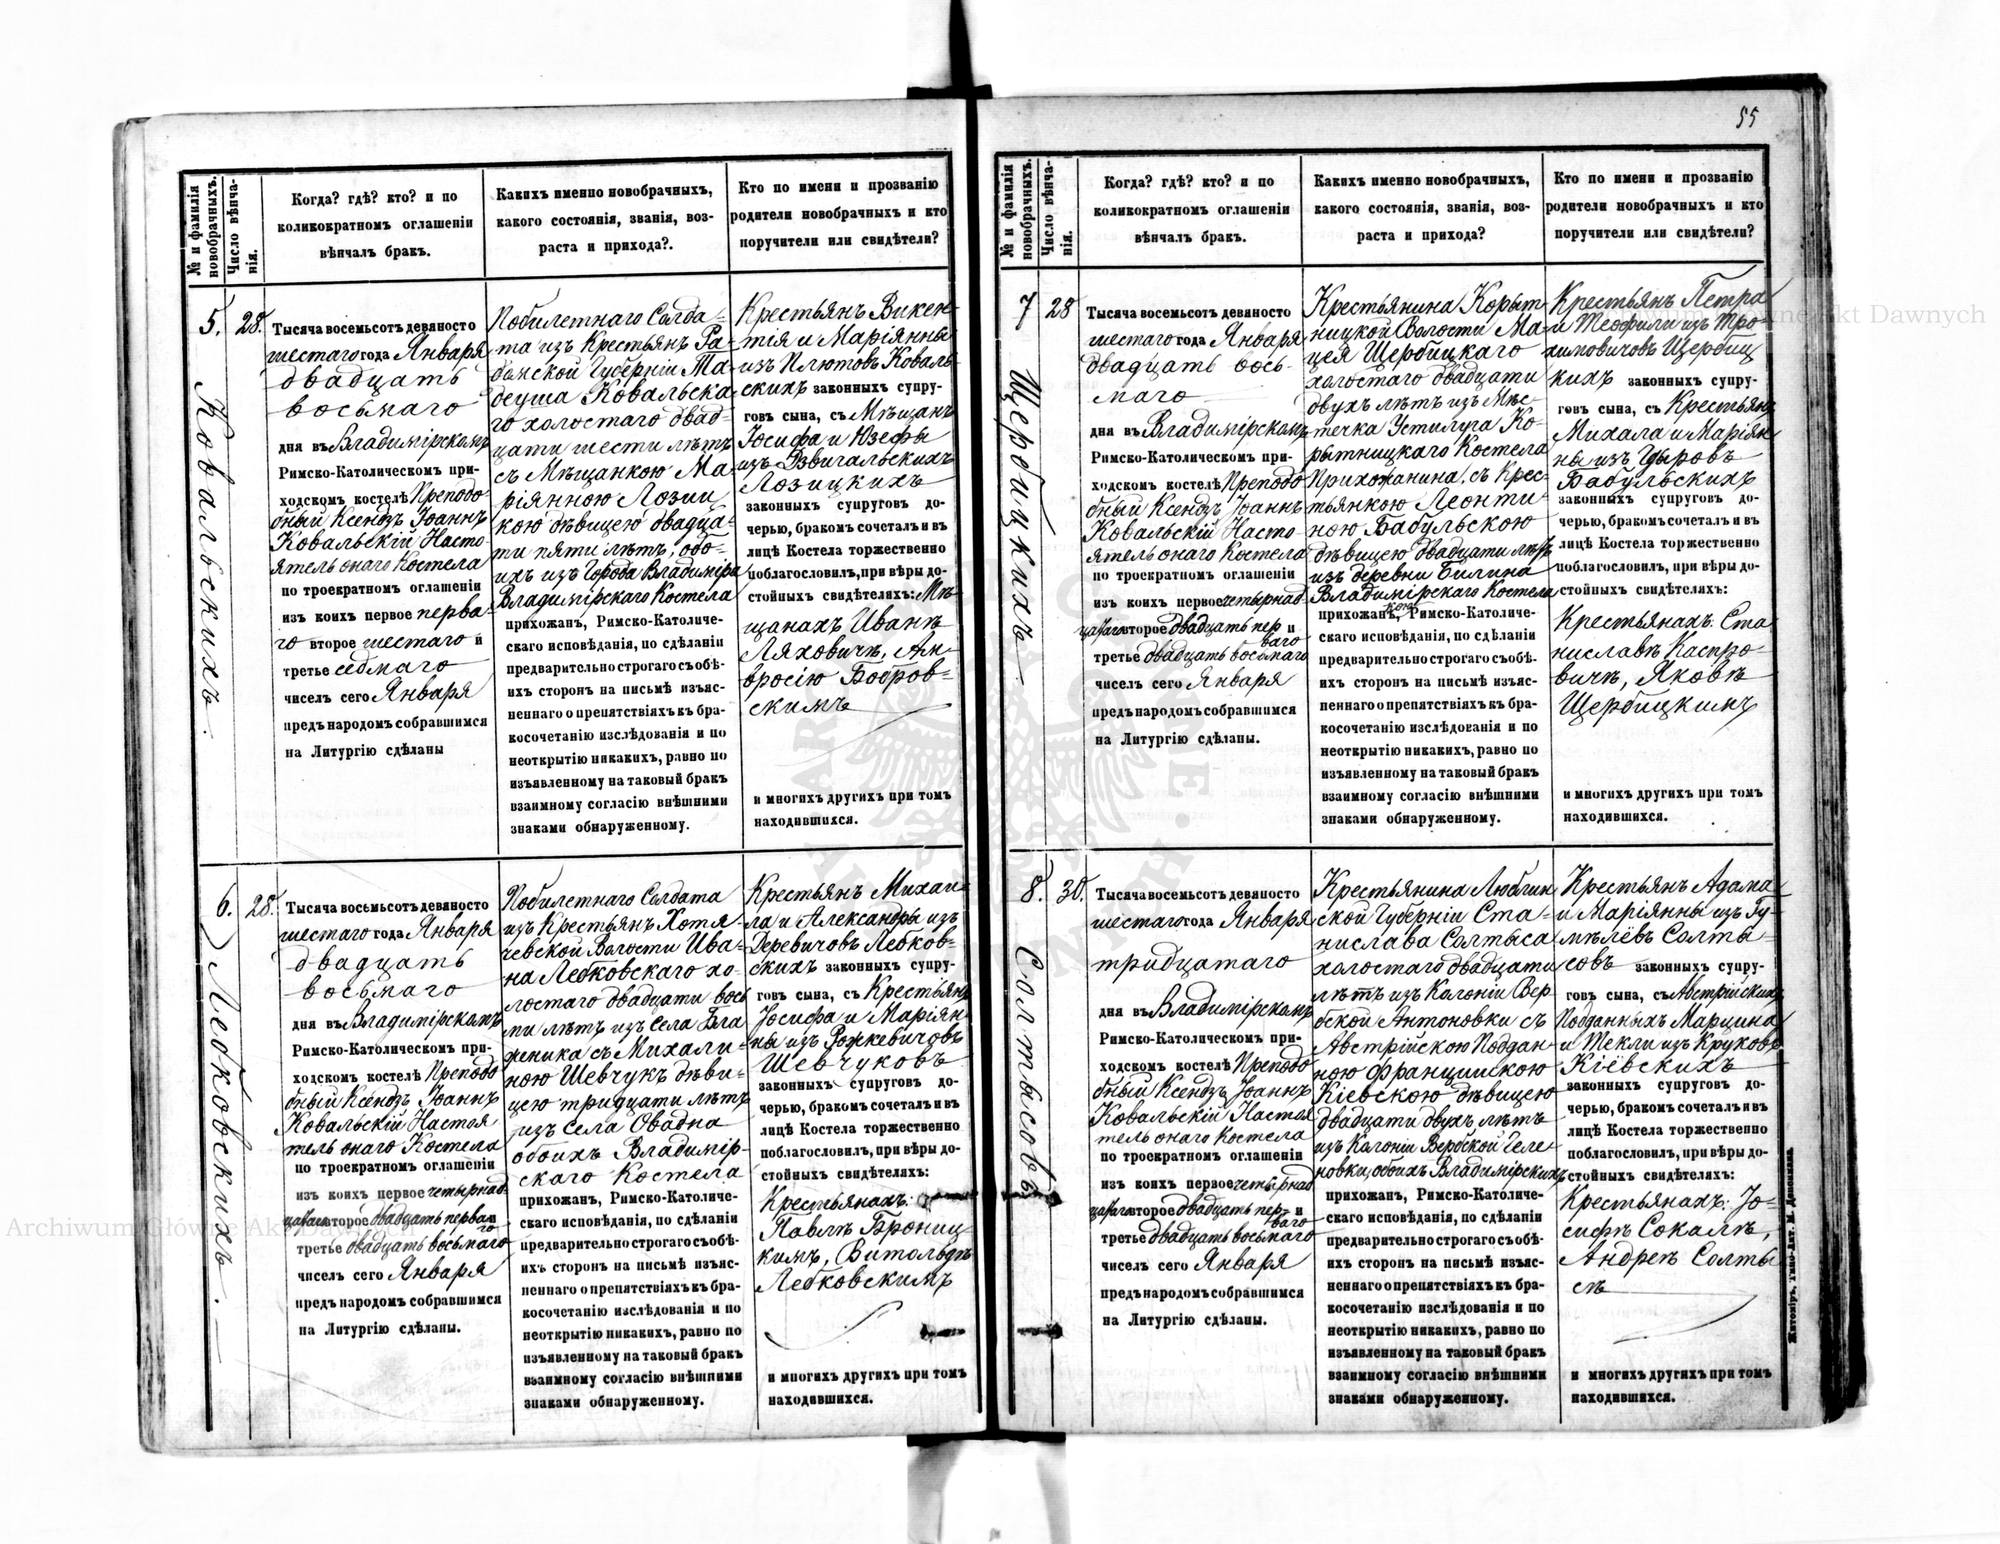 55
№ и фамилія новобрачныхъ.
Число вѣнча-
нія.
Когда? гдѣ? кто? и по
коликократномъ оглашеніи
вѣнчалъ бракъ.
Какихъ именно новобрачныхъ,
какого состоянія, званія, воз-
раста и прихода?.
Кто по имени и прозванію
родители новобрачныхъ и кто
поручители или свидѣтели?
5.
Ковальскихъ.
28.
Тысяча восемьсотъ девяносто
шестаго года Января
двадцать
восьмаго
дня въ Владимірскомъ
Римско-Католическомъ при-
ходскомъ костелѣ Преподо-
бный Ксендзъ Іоаннъ
Ковальскій Насто-
ятель онаго Костела
по троекратномъ оглашеніи
изъ коихъ первое перва-
го второе шестаго и
третье седмаго
чиселъ сего Января
предъ народомъ собравшимся
на Литургію сдѣланы
Побилетнаго Солда-
та изъ Крестьянъ Ра-
домской Губерніи Та-
деуша Ковальска-
го холостаго двад-
цати шести лѣтъ
съ Мѣщанкою Ма-
ріянною Лозиц-
кою дѣвицею двадца-
ти пяти лѣтъ, обо-
ихъ изъ Города Владиміра
Владимірскаго Костела
прихожанъ, Римско-Католиче-
скаго исповѣданія, по сдѣланіи
предварительно строгаго съ обѣ-
ихъ сторонъ на письмѣ изъяс-
неннаго о препятствіяхъ къ бра-
косочетанію изслѣдованія и по
неоткрытію никакихъ, равно по
изъявленному на таковый бракъ
взаимному согласію внѣшними
знаками обнаруженному.
Крестьянъ Викен-
тія и Маріянны
изъ Плютовъ Коваль-
скихъ законныхъ супру-
говъ сына, съ Мѣщанъ
Іосифа и Юзефы
изъ Дзвигальскихъ
Лозицкихъ
законныхъ супруговъ до-
черью, бракомъ сочеталъ и въ
лицѣ Костела торжественно
поблагословилъ, при вѣры до-
стойныхъ свидѣтеляхъ: Мѣ-
щанахъ Иванѣ
Ляховичѣ, Ам-
вросію Бобров-
скимъ
и многихъ другихъ при томъ
находившихся.
6.
Лебковскихъ.
28.
Тысяча восьмьсотъ девяносто
шестаго года Января
двадцать
восьмаго
дня въ Владимірскомъ
Римско-Католическомъ при-
ходскомъ костелѣ Преподо
бный Ксендзъ Іоаннъ
Ковальскій Настоя
тель онаго Костела
по троекратномъ оглашеніи
изъ коихъ первое четырнад-
цатаго второе двадцать перваго и
третье двадцать восьмаго
чиселъ сего Января
предъ народомъ собравшимся
на Литургію сдѣланы.
Побилетнаго Солдата
изъ Крестьянъ Хотя-
чевской Волости Ива-
на Лебковскаго хо-
лостаго двадцати вось
ми лѣтъ изъ села Бла
женика съ Михали-
ною Шевчукъ дѣви-
цею тридцати лѣтъ
изъ села Овадна
обоихъ Владимір-
скаго Костела
прихожанъ, Римско-Католиче-
скаго исповѣданія, по сдѣланіи
предварительно строгаго съ обѣ-
ихъ сторонъ на письмѣ изъяс-
неннаго о препятствіяхъ къ бра-
косочетанію изслѣдованія и по
неоткрытію никакихъ, равно по
изъявленному на таковый бракъ
взаимному согласію внѣшними
знаками обнаруженному.
Крестьянъ Михаи-
ла и Александры изъ
Деревичовъ Лебков-
скихъ законныхъ супру-
говъ сына, съ Крестьянъ
Іосифа и Маріян-
ны изъ Рожкевичовъ
Шевчуковъ
законныхъ супруговъ до-
черью, бракомъ сочеталъ и въ
лицѣ Костела торжественно
поблагословилъ, при вѣры до-
стойныхъ свидѣтеляхъ:
Крестьянахъ:
Павлѣ Брониц-
кимъ, Витольдѣ
Лебковскимъ
и многихъ другихъ при томъ
находившихся.
№ и фамилія новобрачныхъ.
Число вѣнча-
нія.
Когда? гдѣ? кто? и по
коликократномъ оглашеніи
вѣнчалъ бракъ.
Какихъ именно новобрачныхъ,
какого состоянія, званія, воз-
раста и прихода?
Кто по имени и прозванію
родители новобрачныхъ и кто
поручители или свидѣтели?
7
Щербицкихъ
28
Тысяча восемьсотъ девяносто
шестаго года Января
двадцать вось-
маго
дня въ Владимірскомъ
Римско-Католическомъ при-
ходскомъ костелѣ Преподо
бный Ксендзъ Іоаннъ
Ковальскій Насто-
ятель онаго Костела
по троекратномъ оглашеніи
изъ коихъ первое четырнад-
цатаго второе двадцать перваго и
третье двадцать восьмаго
чиселъ сего Января
предъ народомъ собравшимся
на Литургію сдѣланы.
Крестьянина Корыт-
ницкой Волости Ма-
цея Щербицкаго
холостаго двадцати
двухъ лѣтъ изъ Мѣс-
течка Устилуга Ко-
рытницкаго Костела
Прихожанина, съ Крес-
тьянкою Леонти-
ною Бабульскою
дѣвицею двадцати лѣтъ
изъ деревни Билина
Владимірскаго Костела
прихожанкою, Римско-Католиче-
скаго исповѣданія, по сдѣланіи
предварительно строгаго съ обѣ-
ихъ сторонъ на письмѣ изъяс-
неннаго о препятствіяхъ къ бра-
косочетанію изслѣдованія и по
неоткрытію никакихъ, равно по
изъявленному на таковый бракъ
взаимному согласію внѣшними
знаками обнаруженному.
Крестьянъ Петра
и Теофили изъ Тро-
химовичовъ Щербиц
кихъ законныхъ супру-
говъ сына, съ Крестьянъ
Михала и Маріян-
ны изъ Цыровъ
Бабульскихъ
законныхъ супруговъ до-
черью, бракомъ сочеталъ и въ
лицѣ Костела торжественно
поблагословилъ, при вѣры до-
стойныхъ свидѣтеляхъ:
Крестьянахъ: Ста
ниславѣ Каспро-
вичѣ, Яковѣ
Щербицкимъ
и многихъ другихъ при томъ
находившихся.
8.
Солтысовъ
30.
Тысяча восемьсотъ девяносто
шестаго года Января
тридцатаго
дня въ Владимірскомъ
Римско-Католическомъ при-
ходскомъ костелѣ Преподо
бный Ксендзъ Іоаннъ
Ковальскій Настоя
тель онаго Костела
по троекратномъ оглашеніи
изъ коихъ первое четырнад
цатаго второе двадцать перваго и
третье двадцать восьмаго
чиселъ сего Января
предъ народомъ собравшимся
на Литургію сдѣланы.
Крестьянина Люблин
ской Губерніи Ста-
нислава Солтыса
холостаго двадцати
лѣтъ изъ Колоніи Вер-
бской Антоновки съ
Австрійскою Поддан-
ною Францишкою
Кіевскою дѣвицею
двадцати двухъ лѣтъ
изъ Колоніи Вербской Геле-
новки, обоихъ Владимірскихъ
прихожанъ, Римско-Католиче-
скаго исповѣданія, по сдѣланіи
предварительно строгаго съ обѣ-
ихъ сторонъ на письмѣ изъяс-
неннаго о препятствіяхъ къ бра-
косочетанію изслѣдованія и по
неоткрытію никакихъ, равно по
изъявленному на таковый бракъ
взаимному согласію внѣшними
знаками обнаруженному.
Крестьянъ Адама
и Маріянны изъ Гу-
мѣлёвъ Солты-
совъ законныхъ супру-
говъ сына, съ Австрійскихъ
Подданныхъ Марцина
и Текли изъ Круковъ
Кіевскихъ
законныхъ супруговъ до-
черью, бракомъ сочеталъ и въ
лицѣ Костела торжественно
поблагословилъ, при вѣры до-
стойныхъ свидѣтеляхъ:
Крестьянахъ: Іо-
сифѣ Сокалѣ,
Андреѣ Солты
сѣ
и многихъ другихъ при томъ
находившихся.
Житоміръ, Типо-лит. М. Дененмана.
Archiwum Główne Akt Dawnych
Archiwum Główne Akt Dawnych